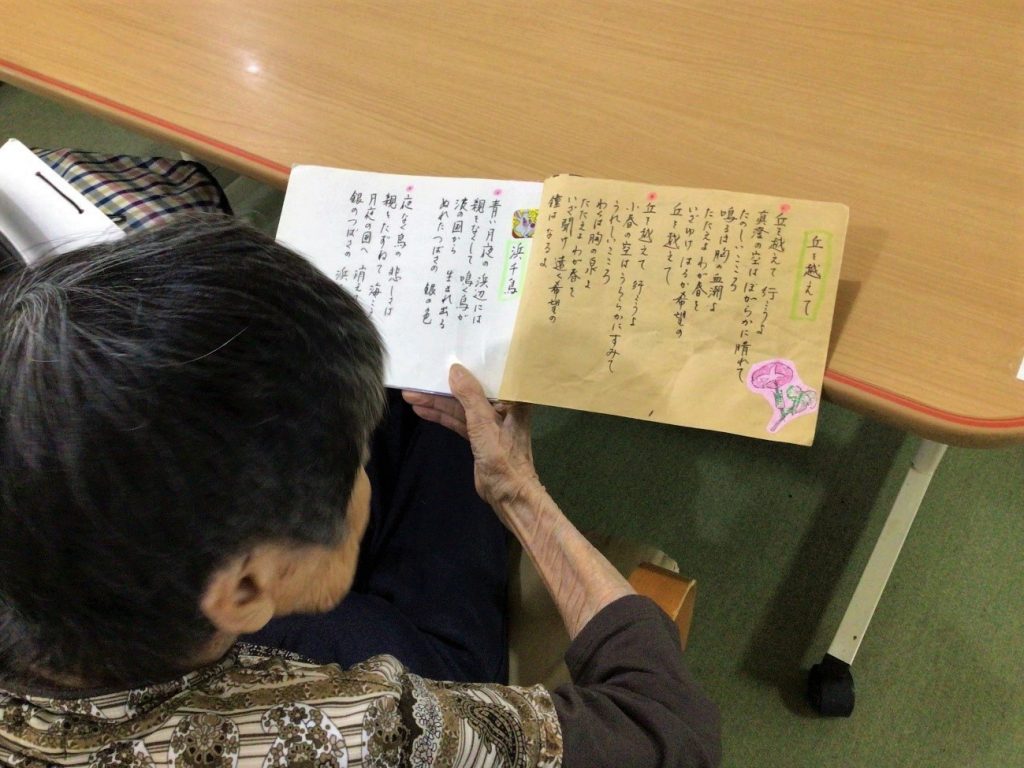 丘を越えて
丘を越えて 行こうよ
真澄の空はほがらかに晴れて
たのしいこころ
鳴るは胸の血潮よ
たたえよわが春を
いざゆけ はるか希望の
丘を越えて
丘を越えて 行こうよ
小春の空はうららかにすみて
うれしいこころ
わくは胸の泉よ
たたえよわが春を
いざ聞け 遠く希望の
鐘はなるよ
浜千鳥
青い月夜の 浜辺には
親をなくして 鳴く鳥が
波の国から 生まれ出る
ぬれたつばさの 銀の色
夜なく鳥の 悲しさは
親をたずねて 海こ
月夜の国へ 消え
銀のつばさの 浜